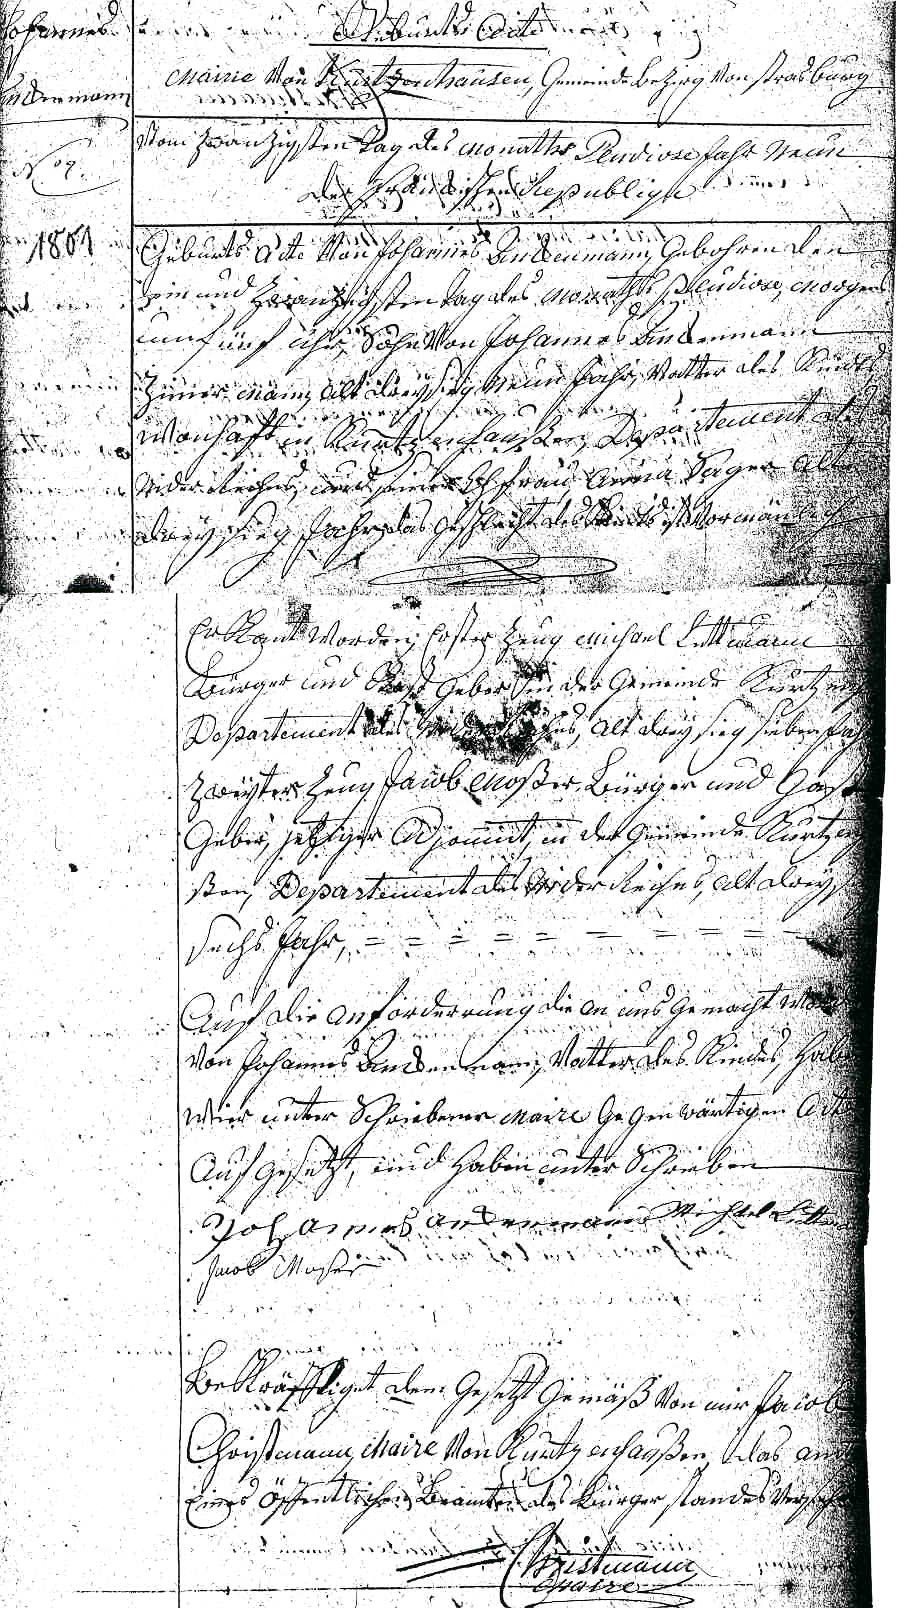 Johannes
Andermann
No 9.
1801
Geburts Acte
Mairie Von Kurtzenhausen, Gemeinde Bezirg Von Strasburg
Vom Zwanzigsten Tag des Monaths Pluviose Jahr Neun
der Fränckischen Republique
Geburts Acte Von Johannes Andermann, Gebohren den
ein und Zwanzigsten Tag des Monaths Pluviose, Morgens
um fünf Uhr, Sohn Von Johannes Andermann
Zimer Mann, Alt dreysig Neun Jahr, Vatter des Kindes
Wonhaft in Kurtzenhaußen, Departement des
Nider Reihns, und seiner Ehfrau Anna Alt
dreysieg Jahr, das Geschlecht des Kindes ist Vor mänlich
Erkant Worden, Erster Zeug Michael Luttmann
Bürger und Gast Geber in der Gemeinde Kurtzen
Departement des Nider Reihns, Alt dreysieg sieben Jahr
Zweyter Zeug Jacob Moßer, Bürger und Gast
Geber, jetziger Adjoint, in der Gemeinde Kurtzen
ßen, Departement des Nider Reihns, Alt drey
sechs Jahr, = = = = = = = = = =
Auf die Anforderrung die an uns Gemacht Worden
Von Johannes Andermann, Vatter des Kindes, Haben
Wier unter Schriebener Maire Gegenwärtigen Act
Auf Gesetzt, und Haben unter Schrieben
Johannes andermann Michael Luttman
Jacob Moser
Bekräfftiget dem Gesetzt Gemäß Von mir Jacob
Christmann, Maire Von Kurtzenhaußen, das amt
Eines Öffentlichen Beamten des Bürger standes Versehen
Christmann
Maire